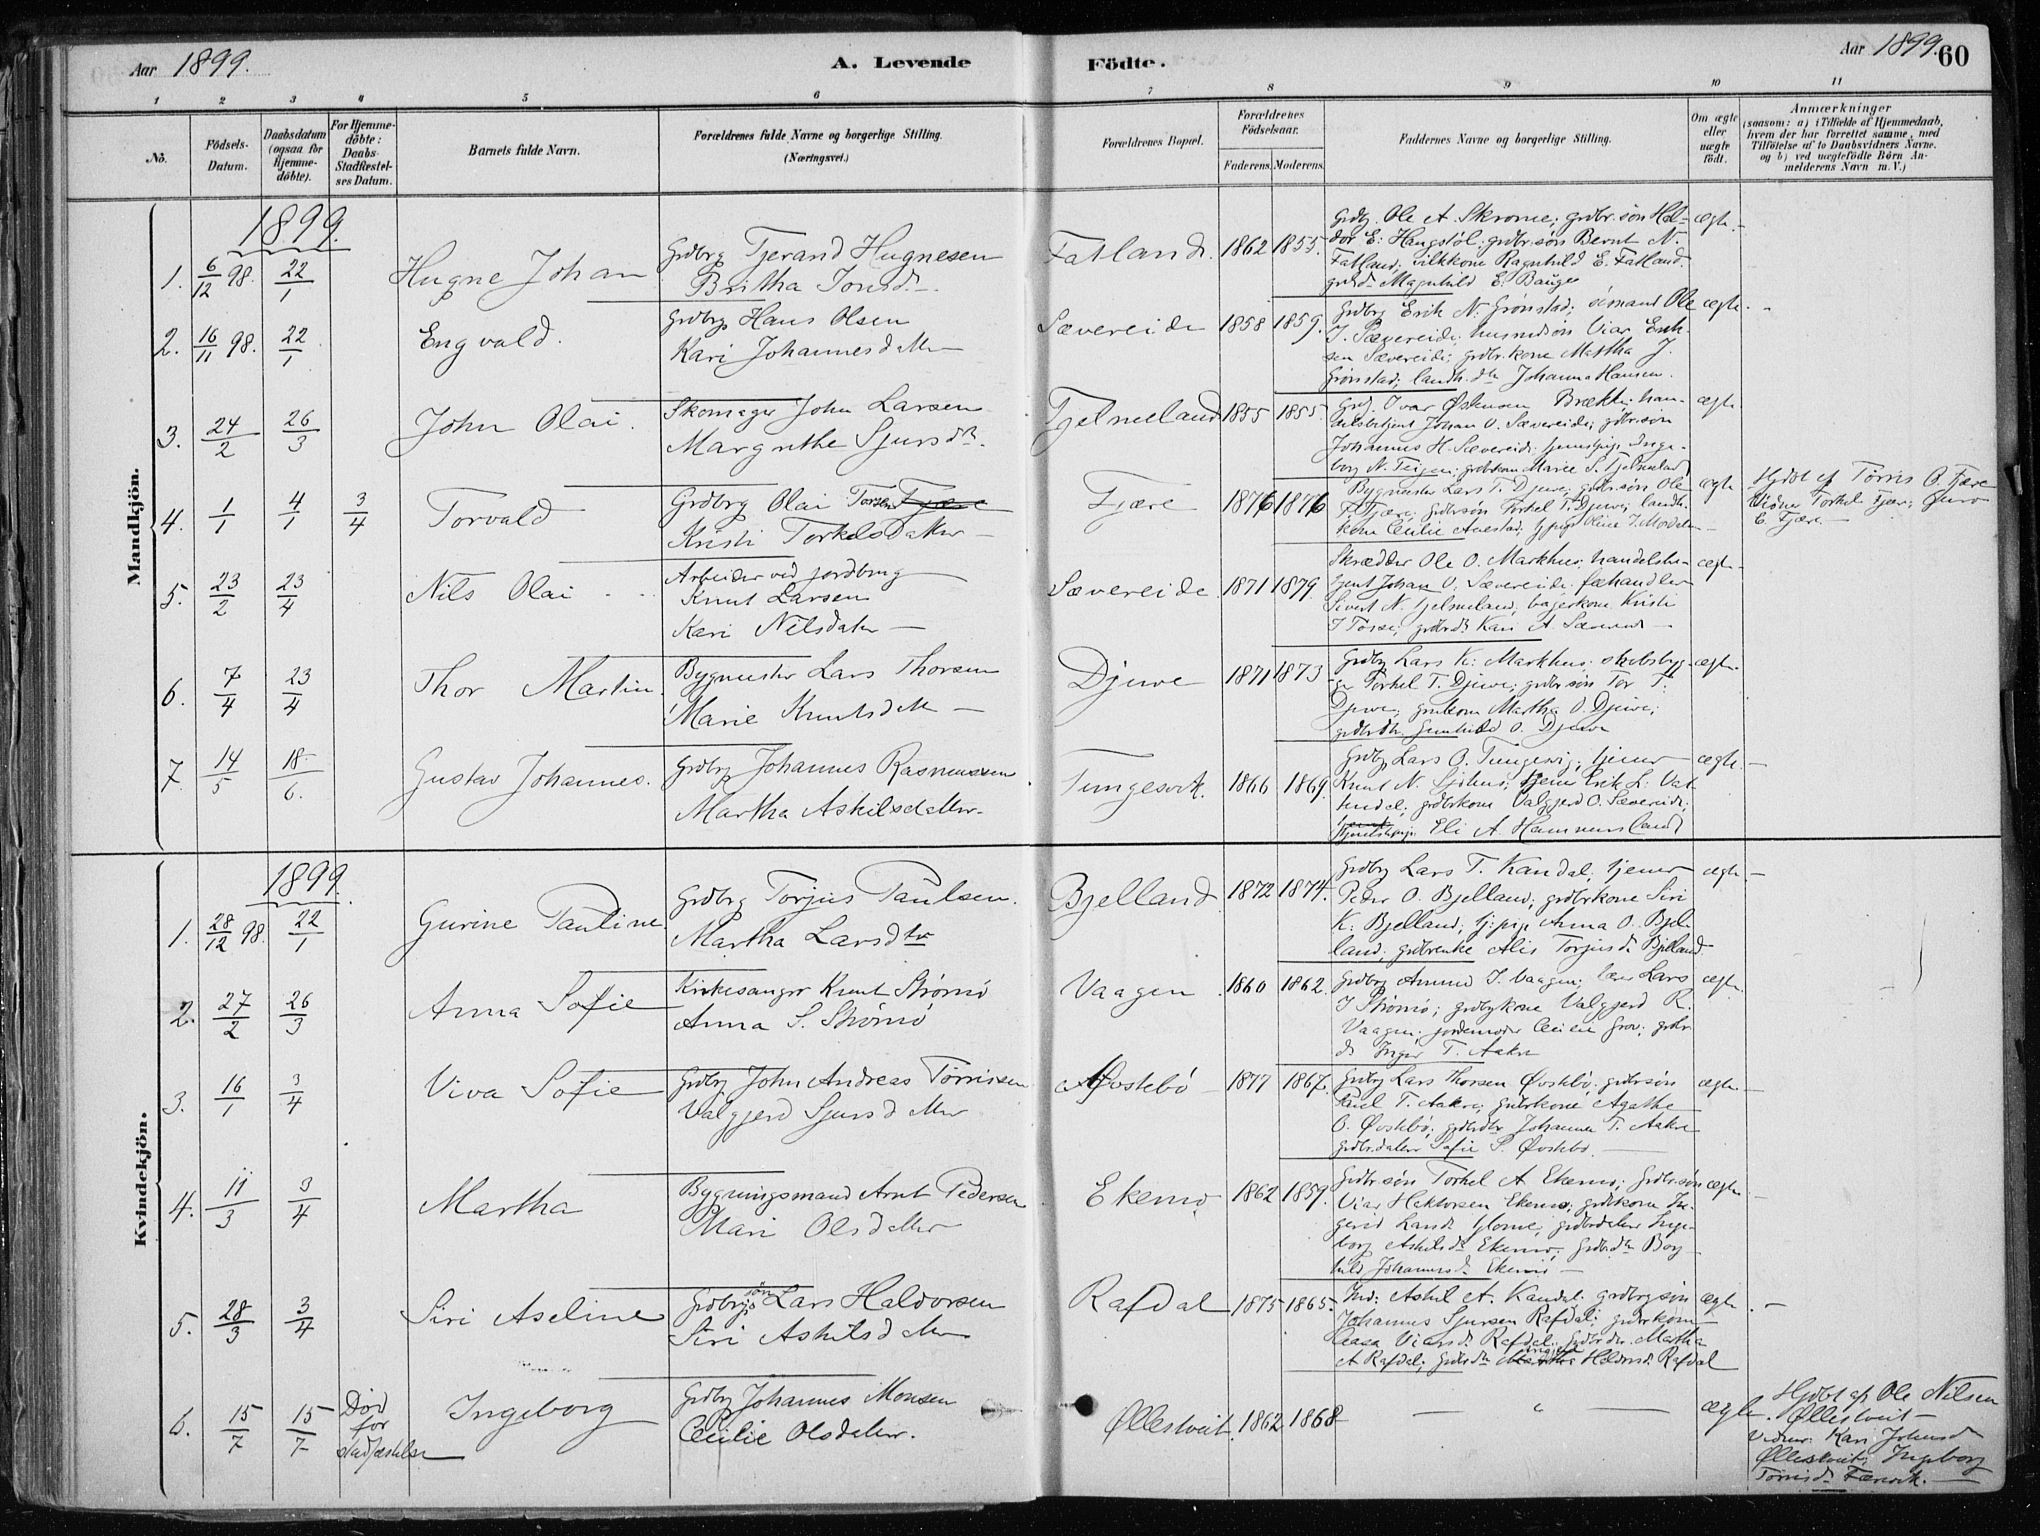 Aar 1899.
A. Levende Födte.
Aar 1899. 60
1 2 3 4 5 6 7 8 9 10 11
No.
Födsels-Datum.
Daabsdatum (ogsaa för Hjemme-döbte).
For Hjemme-döbte: Daabs-Stadfæstel-ses Datum.
Barnets fulde Navn.
Forældrenes fulde Navne og borgerlige Stilling.
(Næringsvei.)
Forældrenes Bopæl.
Forældrenes Födselsaar.
Faderens. Moderens.
Faddernes Navne og borgerlige Stilling.
Om ægte eller uægte födt.
Anmærkninger
(saasom: a) i Tilfælde af Hjemmedaab,
hvem der har forrettet samme, med
Tilföielse af to Daabsvidners Navne.
og b) ved uægtefödte Börn An-
melderens Navn m. V.)
Mandkjön.
1899.
1. 6/12 98. 22/1 Hugne Johan
Grdbrg Tjerand Hugnesen
Britha Jonsd.
Fatland. 1862 1855.
Grdbg. Ole A. Skrome; grdbr.søn Hal-
dor E. Haugstøl; grdbr.søn Bernt N.
Fatland; Ragnhild E. Fatland.
Magnhild E. Bauge
ægte.
2. 16/11 98. 22/1 Engvald.
Grdbrg Hans Olsen
Kari Johannesdatter
Sævereide 1858 1859.
Grdbrg Erik N. Grønstad; sömand Ole
J. Sævereide; Viar Erik-
sen Sævereide; grdbr.kone Martha J.
Grönstad; landh. dtr Johanna Hansen.
ægte.
3. 24/2 26/3 John Olai.
Skomager John Larsen
Margrethe Sjursdtr.
Tjelmeland 1855 1855
Ivar Brække; han-
delsbetjent Johan O. Sævereide; grdbrsøn
Johannes H. Sævereide; Inge-
borg N. Teigen; Marie S. Tjelmeland
ægte
4. 1/1 4/1 3/4 Torvald
Grdbrg Olai Torsen Fjære
Kristi Torkelsdatter
Fjære 1876 1876
Bygmester Lars T. Djuve; grdbrsøn Ole
T. Fjære; grdbrsøn Torkel T. Djuve; landh.
kone Cecilie
ægte
Hjdbt af Tørris O. Fjære
Vidner Torkel Fjære; Guro
E. Fjære
5. 23/2 23/4 Nils Olai
Arbeider ved jordbrug
Knut Larsen
Kari Nilsdatter
Sævereide 1871 1879.
Skrædder Ole O. Markhus; handelsbe-
tjent Johan O. Sævereide; fæhandler
Sivert N. Tjelmeland; bagerkone Kristi
grdbrd. Kari A.
ægte
6. 7/4 23/4 Thor Martin.
Bygmester Lars Thorsen
Marie Knutsdatter
Djuve 1871 1873
Grdbrg Lars K. Markhus; skibsbyg-
ger Torkel T. Djuve; grdbrsøn Tor T.
Djuve; Martha O. Djuve;
grdbrdtr. Gunhild O. Djuve
ægte.
7. 14/5 18/6. Gustav Johannes.
Grdbrg Johannes Rasmussen
Martha Askilsdatter.
Tungesvik. 1866 1869.
Grdbrg Lars O. Tungesvig; tjener
Knut N. tjener Erik L. Vat-
tendal; grdbrkone Valgjerd O. Sævereide;
Eli A. Hammersland
ægte.
Kvindekjön.
1899.
1. 28/12 98. 22/1 Gurine Pauline
Grdbrg Torjus Paulsen.
Martha Larsdtr
Bjelland. 1872 1874.
Grdbrg Lars T. Kandal; tjener
Peder O. Bjelland; grdbrkone Siri
K. Bjelland; tj.pige Anna O. Bjel-
land; grdbrenke Alis Torjusd. Bjelland
ægte.
2. 27/2 26/3 Anna Sofie
Kirkesanger Knut Strømø
Anna S. Strømø
Vaagen. 1860 1862.
Grdbrg Amund J. Vaagen; lærer Lars
J. Strømø; grdbrgkone Valgjerd R.
Vaagen; jordemoder Cecilie Grov; grdbr
d. Inger T. Aakre
ægte.
3. 16/1 3/4 Viva Sofie
Grdbrg John Andreas Tørrissen
Valgjerd Sjursdatter
Øvstebø 1877 1867.
Grdbrg Lars Thorsen Øvstebø; grdbrsøn
Paul T. Aakre; grdbrkone Agathe
O. Øvstebø; grdbrdtr Johanna T. Aakre
grdbr.datter Sofie P. Øvstebø.
ægte
4. 11/3 3/4 Martha
Bygningsmand Arnt Pedersen
Mari Olsdatter
Ekemo 1862 1859.
Grdbrsøn Torkel A. Ekemo; grdbrsøn
Viar Haktorsen Ekemo; grdbrkone In-
gerid Larsd. grdbrdatter Inge-
borg Askilsd. Ekemo; grdbrdtr Borg-
hild Johannesd. Ekemo
ægte
5. 28/3 3/4 Siri Aseline
Grdbrgs søn Lars Haldorsen
Siri Askilsdatter
Rafdal 1875 1865.
Ind: Askil A. Kandal; grdbrgsøn
Johannes Sjursen Rafdal; grdbrkone
Aasa Viarsd. Rafdal; grdbrdtr. Martha
A. Rafdal; grdbrdtr Haldorsd. Rafdal
ægte.
6. 15/7 15/7 Død før stadfæstelse Ingeborg
Grdbrg Johannes Monsen
Cecilie Olsdatter.
Øllestveit. 1862 1868
— „ —
ægte.
Hjdbt af Ole Nilsen
Øllestveit
Vidner: Kari Johnsd
Øllestveit; Ingeborg
Tørrisd. Fæsvik.